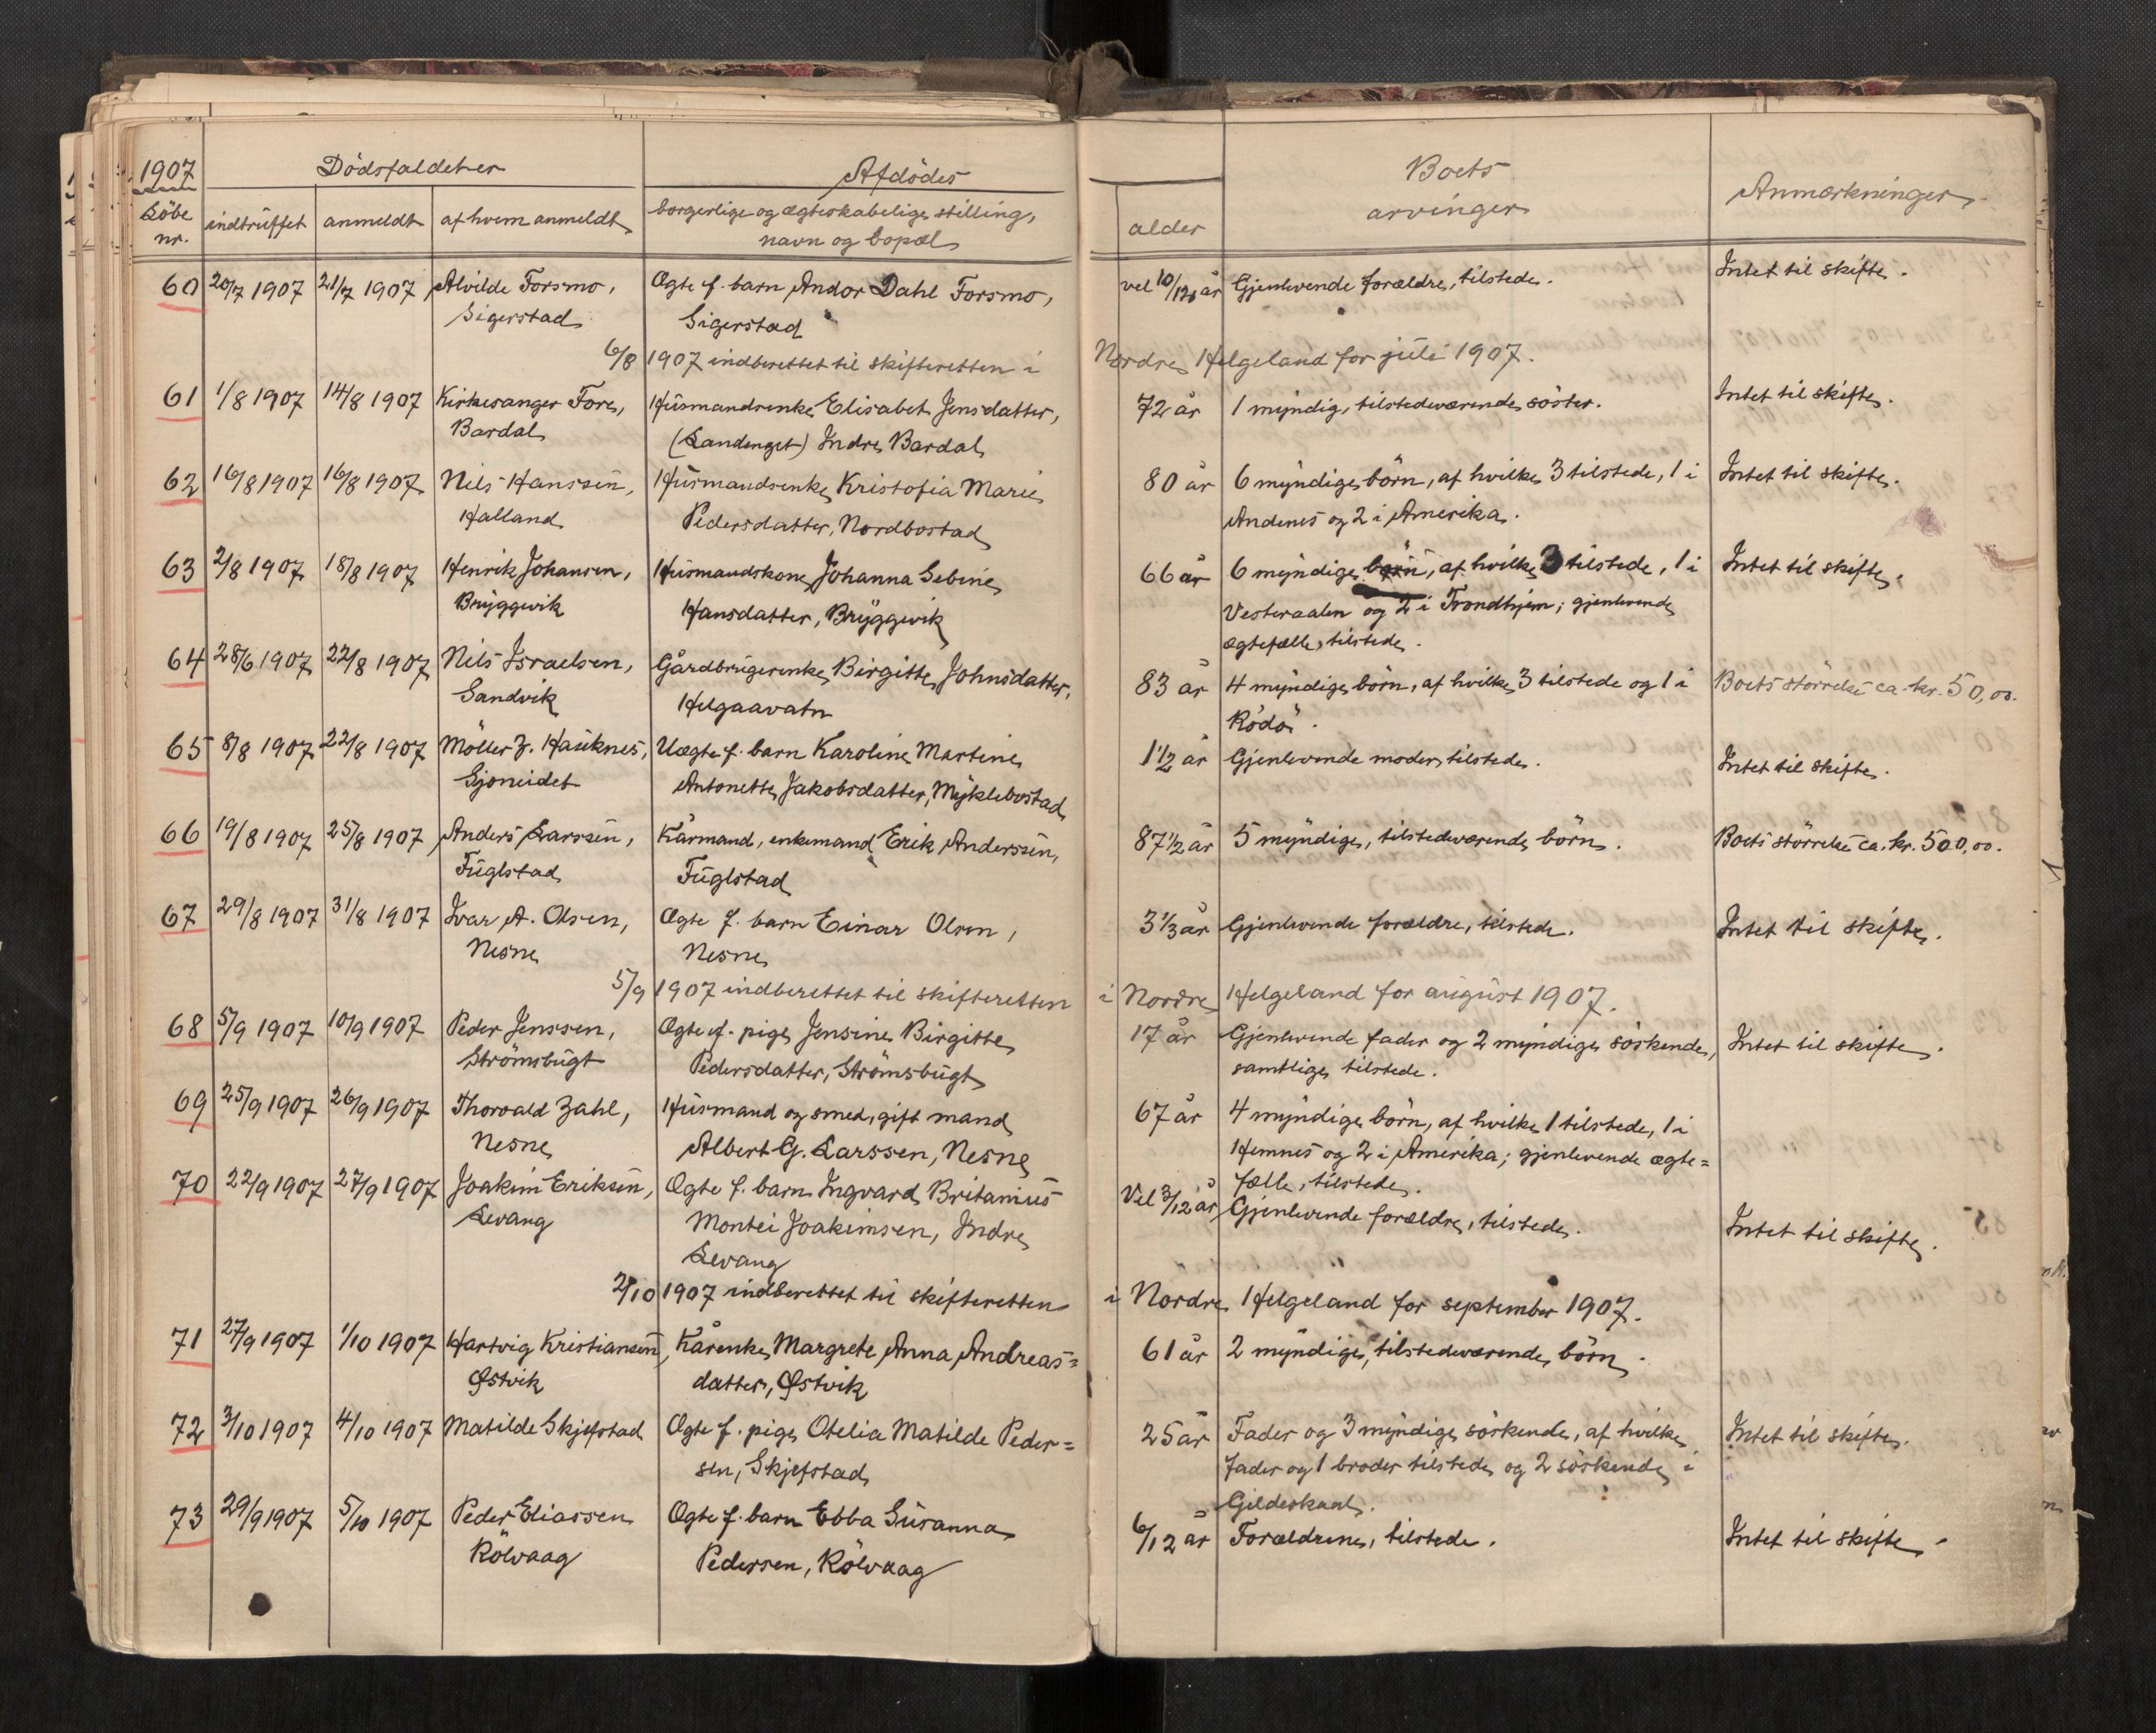 1907 Dödsfaldet er Afdödes Boets Anmærkninger
Löbe nr. indtruffet anmeldt af hvem anmeldt borgerlige og ægteskabelige stilling, navn og bopæl alder arvinger
60 20/7 1907 21/7 1907 Alvilde Forsmo, Ægte f. barn Andor Dahl Forsmo, vel 10/12 år Gjenlevende forældre, tilstede. Intet til skifte.
Sigerstad Sigerstad
6/8 1907 indberettet til skifteretten i Nordre Helgeland for juli 1907.
61 1/8 1907 14/8 1907 Kirkesanger Fore, Husmandsenke Elisabet Jensdatter, 72 år 1 myndig, tilstedeværende söster. Intet til skifte.
Bardal (Landenget) Indre Bardal
62 16/8 1907 16/8 1907 Nils Hanssen, Husmandsenke Kristofia Marie 80 år 6 myndige börn, af hvilke 3 tilstede, 1 i Intet til skifte.
Halland Pedersdatter, Nordbostad Andenes og 2 i Amerika.
63 2/8 1907 18/8 1907 Henrik Johansen, Husmandskone Johanna Sebine 66 år 6 myndige börn, af hvilke 3 tilstede, 1 i Intet til skifte.
Bryggvik Hansdatter, Bryggvik Vesteraalen og 2 i Trondhjem; gjenlevende
ægtefælle, tilstede.
64 28/6 1907 22/8 1907 Nils Israelsen, Gårdbrugerenke Birgitte Johnsdatter, 83 år 4 myndige börn, af hvilke 3 tilstede og 1 i Boets störrelse ca. kr. 50,00.
Sandvik Helgaavatn Rödö.
65 8/8 1907 22/8 1907 Möller Z. Hauknes, Uægte f. barn Karoline Martine 1 1/2 år Gjenlevende moder, tilstede. Intet til skifte.
Sjoneidet Antonette Jakobsdatter, Myklebostad
66 19/8 1907 25/8 1907 Anders Larssen, Kårmand, enkemand Erik Anderssen, 87 1/2 år 5 myndige, tilstedeværende börn. Boets störrelse ca. kr. 500,00.
Fuglstad Fuglstad
67 29/8 1907 31/8 1907 Ivar A. Olsen, Ægte f. barn Einar Olsen, 3 1/3 år Gjenlevende forældre, tilstede. Intet til skifte.
Nesne Nesne
5/9 1907 indberettet til skifteretten i Nordre Helgeland for august 1907.
68 5/9 1907 10/9 1907 Peder Jenssen, Ægte f. pige Jensine Birgitte 17 år Gjenlevende fader og 2 myndige söskende, Intet til skifte.
Strömsbugt Pedersdatter, Strömsbugt samtlige tilstede.
69 25/9 1907 26/9 1907 Thorvald Zahl, Husmand og smed, gift mand 67 år 4 myndige börn, af hvilke 1 tilstede, 1 i
Nesne Albert G. Larssen, Nesne Hemnes og 2 i Amerika; gjenlevende ægte=
fælle, tilstede.
70 22/9 1907 27/9 1907 Joakim Eriksen, Ægte f. barn Ingvard Britanius Vel 3/12 år Gjenlevende forældre, tilstede. Intet til skifte.
Levang Montei Joakimsen, Indre
Levang
2/10 1907 indberettet til skifteretten i Nordre Helgeland for september 1907.
71 27/9 1907 1/10 1907 Hartvig Kristiansen, Kårenke Margrete Anna Andreas= 61 år 2 myndige, tilstedeværende börn.
Østvik datter, Østvik
72 3/10 1907 4/10 1907 Matilde Skjefstad Ægte f. pige Otelia Matilde Peder= 25 år Fader og 3 myndige söskende, af hvilke Intet til skifte.
sen, Skjefstad fader og 1 broder tilstede og 2 söskende i
Gildeskaal.
73 29/9 1907 5/10 1907 Peder Eliassen Ægte f. barn Ebba Susanna 6/12 år Forældrene, tilstede. Intet til skifte.
Kölvaag Pedersen, Kölvaag